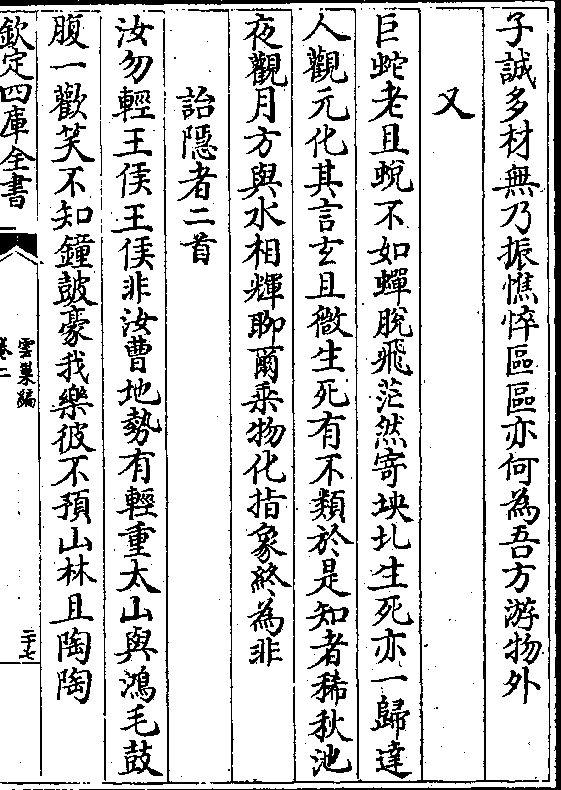 子誠多材無乃振憔悴區區亦何為吾方游物外
又
巨蛇老且蛻不如蟬脫飛茫然寄坱圠生死亦一歸達
人觀元化其言玄且微生死有不類於是知者稀秋池
夜觀月方與水相輝聊爾乘物化指象終為非
詒隱者二首
汝勿輕王侯王侯非汝曹地勢有輕重太山與鴻毛鼓
腹一歡笑不知鐘鼓豪我樂彼不預山林且陶陶
欽定四庫全書
雲巢編
卷二
二十七